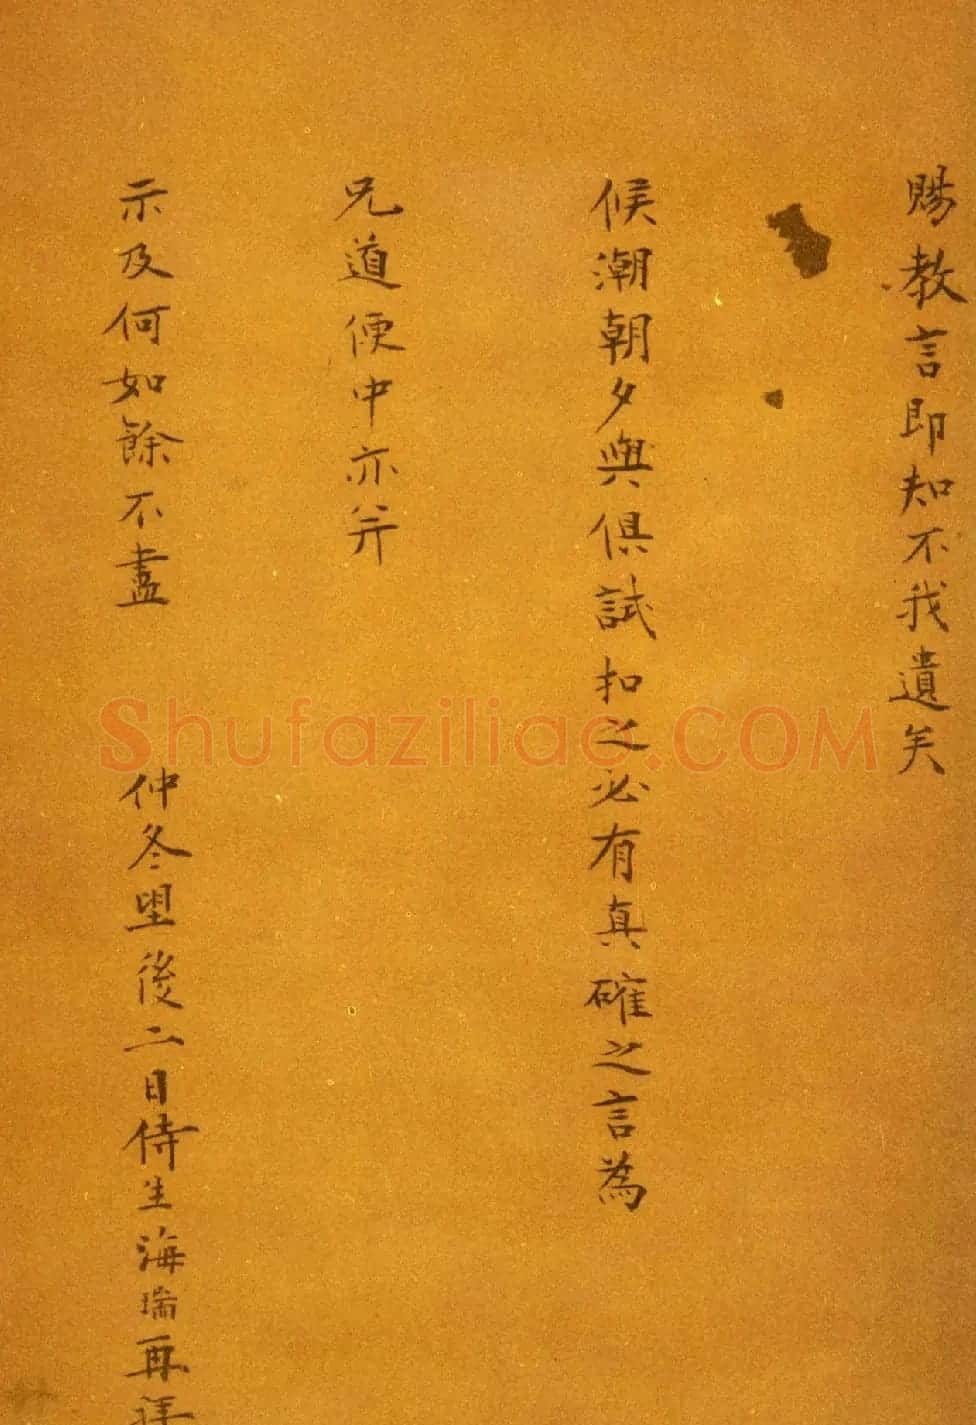 賜教言即知不我遺矣
候潮朝夕與俱試扣之必有真確之言為
兄道便中亦并
示及何如餘不盡 仲冬望後二日侍生海瑞再拜
Shufaziliao.COM